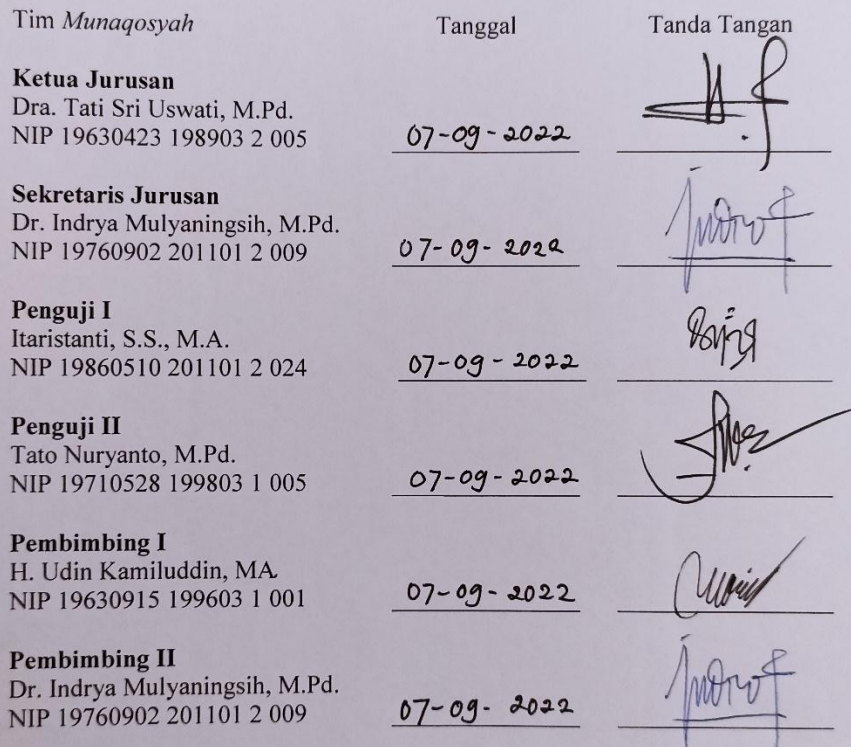 Tim Munaqosyah Tanggal Tanda Tangan
Ketua Jurusan
Dra. Tati Sri Uswati, M.Pd.
NIP 19630423 198903 2 005 07-09-2022
Sekretaris Jurusan
Dr. Indrya Mulyaningsih, M.Pd.
NIP 19760902 201101 2 009 07-09-2022
Penguji I
Itaristanti, S.S., M.A.
NIP 19860510 201101 2 024 07-09-2022
Penguji II
Tato Nuryanto, M.Pd.
NIP 19710528 199803 1 005 07-09-2022
Pembimbing I
H. Udin Kamiluddin, MA.
NIP 19630915 199603 1 001 07-09-2022
Pembimbing II
Dr. Indrya Mulyaningsih, M.Pd.
NIP 19760902 201101 2 009 07-09-2022